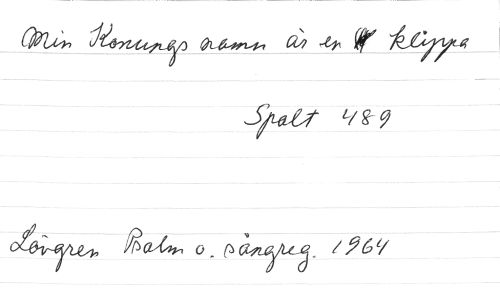 Min Konungs namn är en klippa
Spalt 489
Lövgren Psalm o. sångreg. 1964